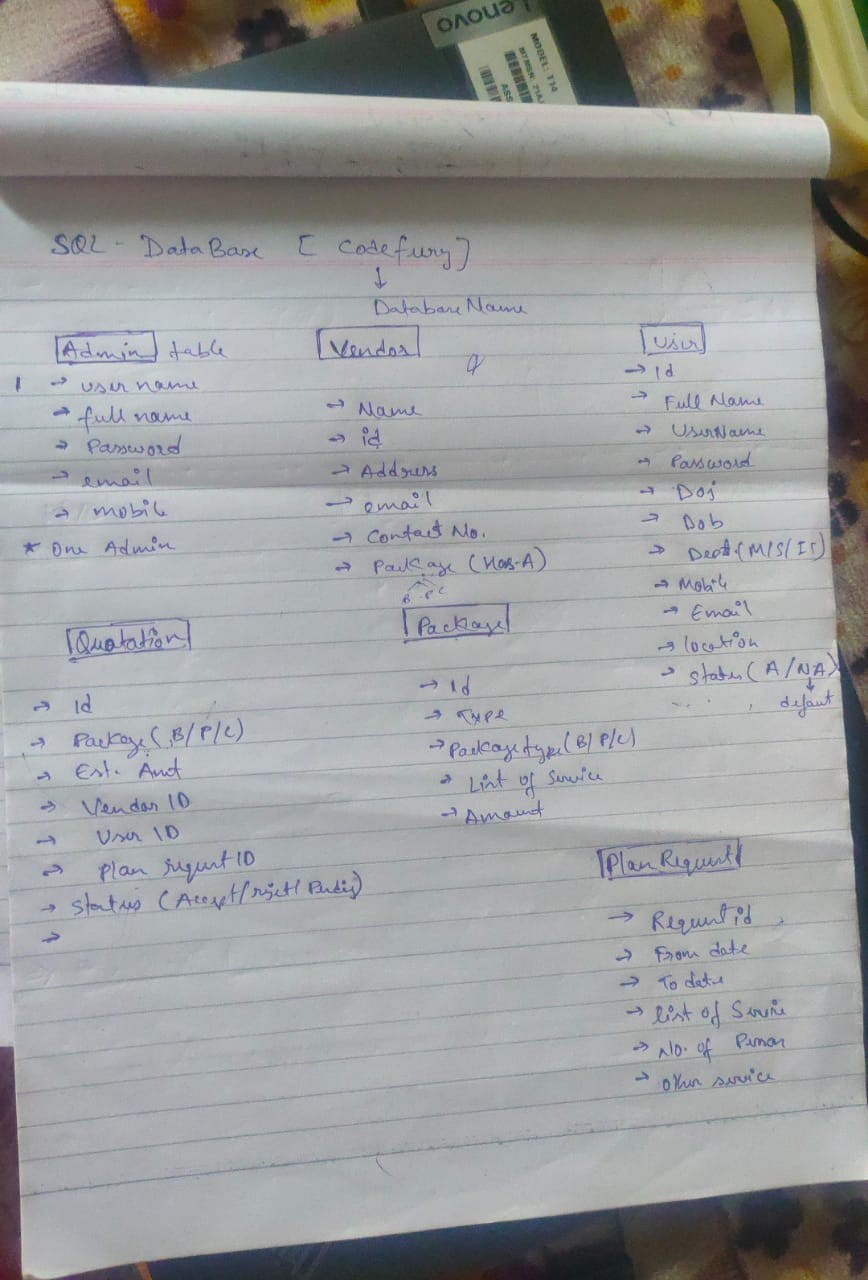 Lenovo
MODEL: T14
SQL - DataBase [ Codefury ]
↓
Database Name
Admin table
1 → user name
→ full name
→ Password
→ email
→ mobile
* One Admin
Vendor
→ Name
→ id
→ Address
→ email
→ Contact No.
→ Package (Has-A)
B P C
User
→ Id
→ Full Name
→ UserName
→ Password
→ Doj
→ Dob
→ Dept (M/S/IT)
→ Mobile
→ Email
→ location
→ Status (A/NA)
↓
Quatation
→ Id
→ Package (B/P/C)
→ Est. Amt
→ Vendor ID
→ User ID
→ Plan request ID
→ Status (Accept/reject/Pending)
→
Package
→ Id
→ Type
→ Package type (B/P/C)
→ List of Service
→ Amount
Plan Request
→ Request id
→ From date
→ To date
→ list of Service
→ No. of Person
→ other service